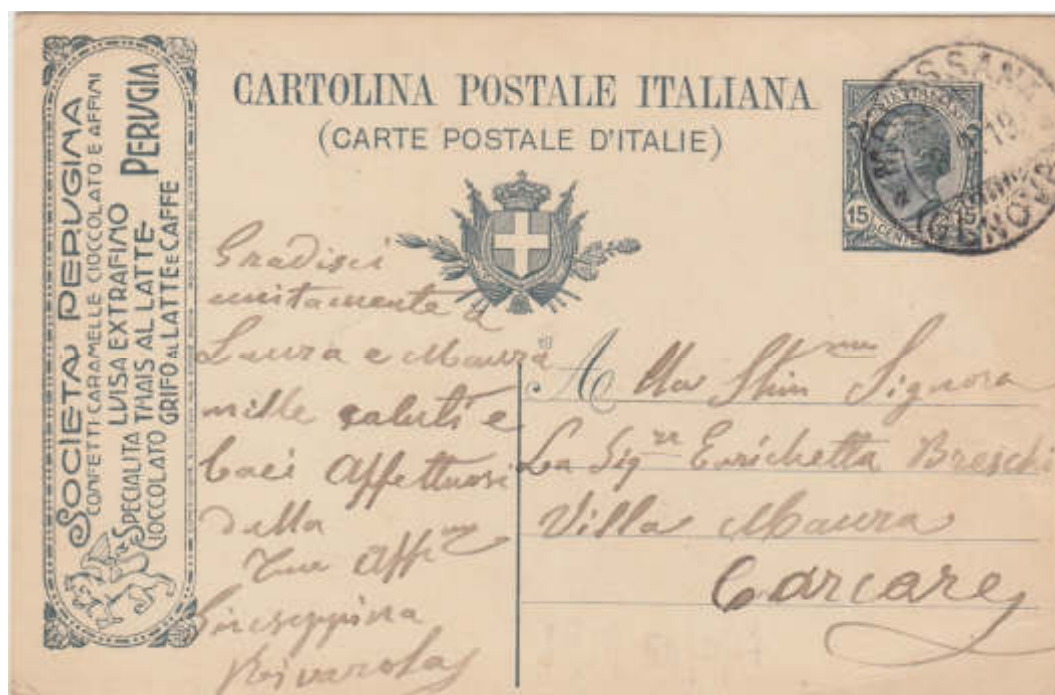 SOCIETÀ PERUGINA
CONFETTI·CARAMELLE CIOCCOLATO E AFFINI
SPECIALITÀ LUISA EXTRAFINO
CIOCCOLATO THAIS AL LATTE-
GRIFO AL LATTE E CAFFE
PERUGIA
CARTOLINA POSTALE ITALIANA
(CARTE POSTALE D'ITALIE)
15 15
CENT
(GENOVA)
19
Gradisci
unitamente a
Laura e Maura
mille saluti e
baci affettuosi
dalla
Tua Affma
Giuseppina
Rivarola
Alla Stim Signora
La Sig Enrichetta Breschi
Villa Maura
Carcare